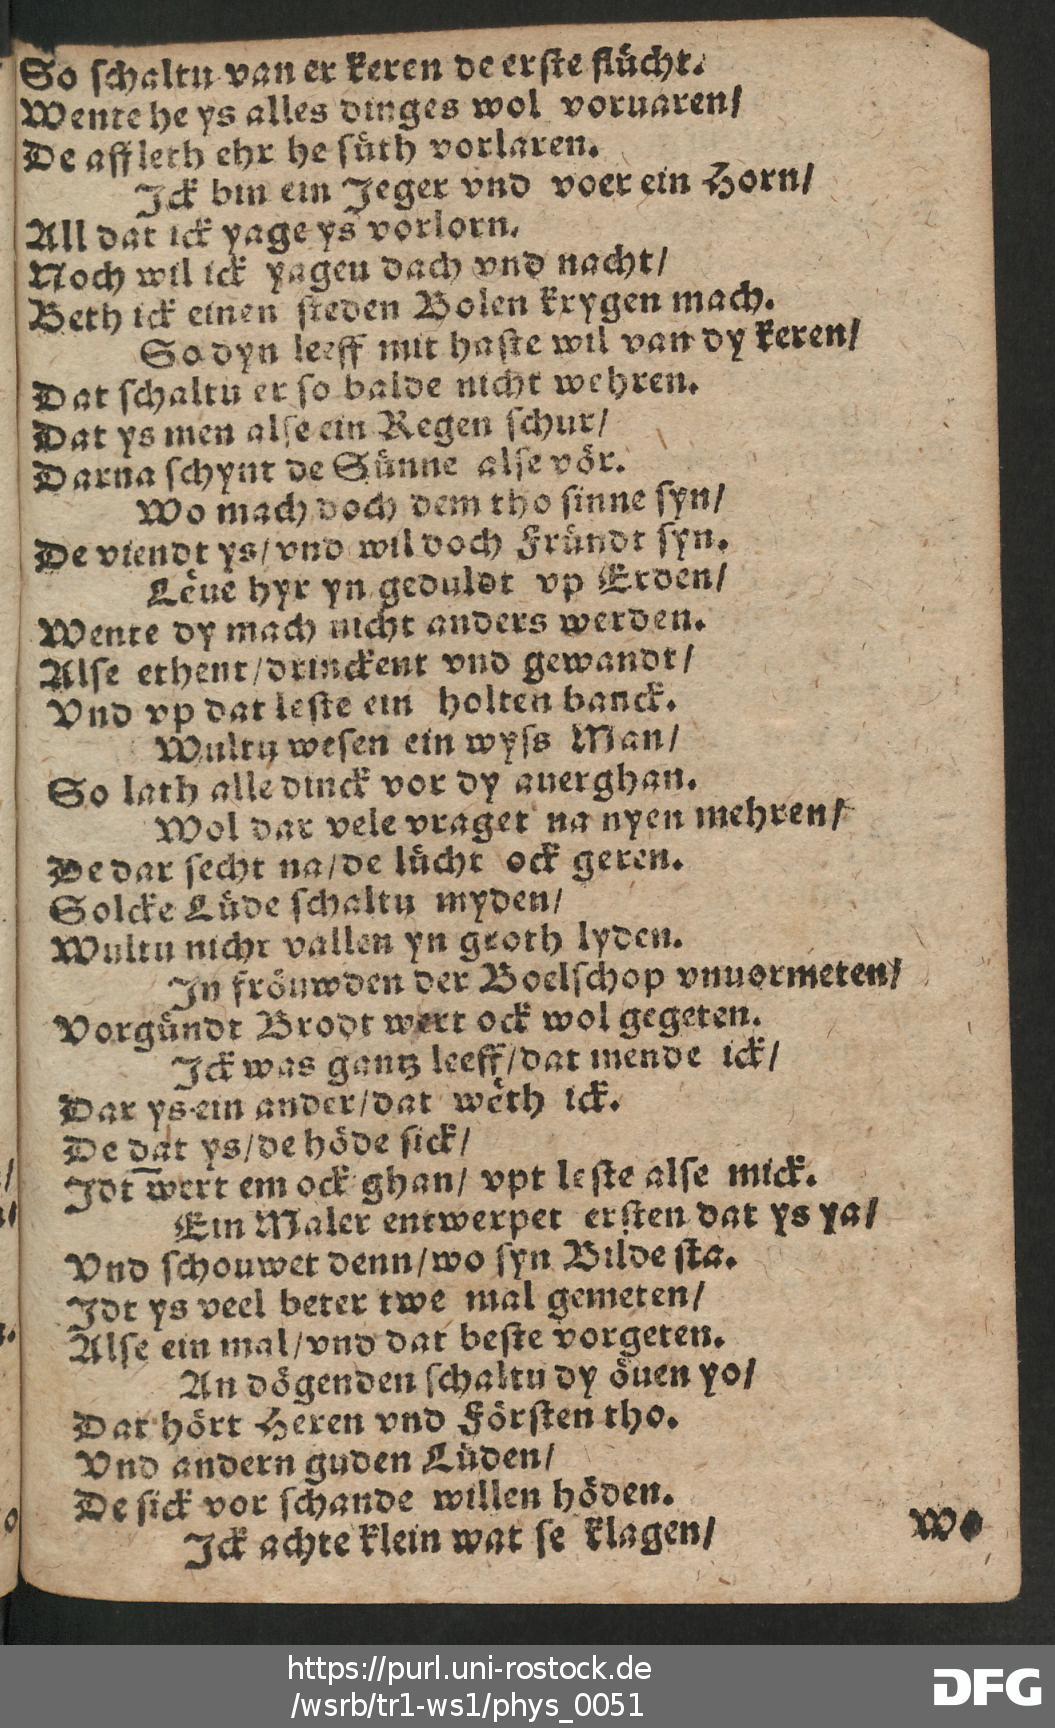 So ſchaltu van er keren de erſte flücht.
Wente he ys alles dinges wol voruaren/
De affleth ehr he ſüth vorlaren.
Jck bin ein Jeger vnd voer ein Horn/
All dat ick yage ys vorlorn.
Noch wil ick yagen dach vnd nacht/
Beth ick einen ſteden Bolen krygen mach.
So dyn leeff mit haſte wil van dy keren/
Dat ſchaltu er ſo balde nicht wehren.
Dat ys men alſe ein Regen ſchur/
Darna ſchynt de Sünne alſe vör.
Wo mach doch dem tho ſinne ſyn/
De viendt ys/ vnd wil doch Fründt ſyn.
Lëue hyr yn geduldt vp Erden/
Wente dy mach nicht anders werden.
Alſe ethent/drinckent vnd gewandt/
Vnd vp dat leſte ein holten banck.
Wultu weſen ein wyſs Man/
So lath alle dinck vor dy auerghan.
Wol dar vele vraget na nyen mehren/
De dar ſecht na/de lücht ock geren.
Solcke Lüde ſchaltu myden/
Wultu nicht vallen yn groth lyden.
Jn fröuwden der Boelſchop vnuormeten/
Vorgündt Brodt wert ock wol gegeten.
Jck was gantz leeff/dat mende ick/
Dar ys ein ander/dat wëth ick.
De dat ys/de höde ſick/
Jdt wert em ock ghan/ vpt leſte alſe mick.
Ein Maler entwerpet erſten dat ys ya/
Vnd ſchouwet denn/wo ſyn Bilde ſta.
Jdt ys veel beter twe mal gemeten/
Alſe ein mal/vnd dat beſte vorgeten.
An dögenden ſchaltu dy öuen yo/
Dat hört Heren vnd Förſten tho.
Vnd andern guden Lüden/
De ſick vor ſchande willen höden.
Jck achte klein wat ſe klagen/
Wo
https://purl.uni-rostock.de
/wsrb/tr1-ws1/phys_0051
DFG